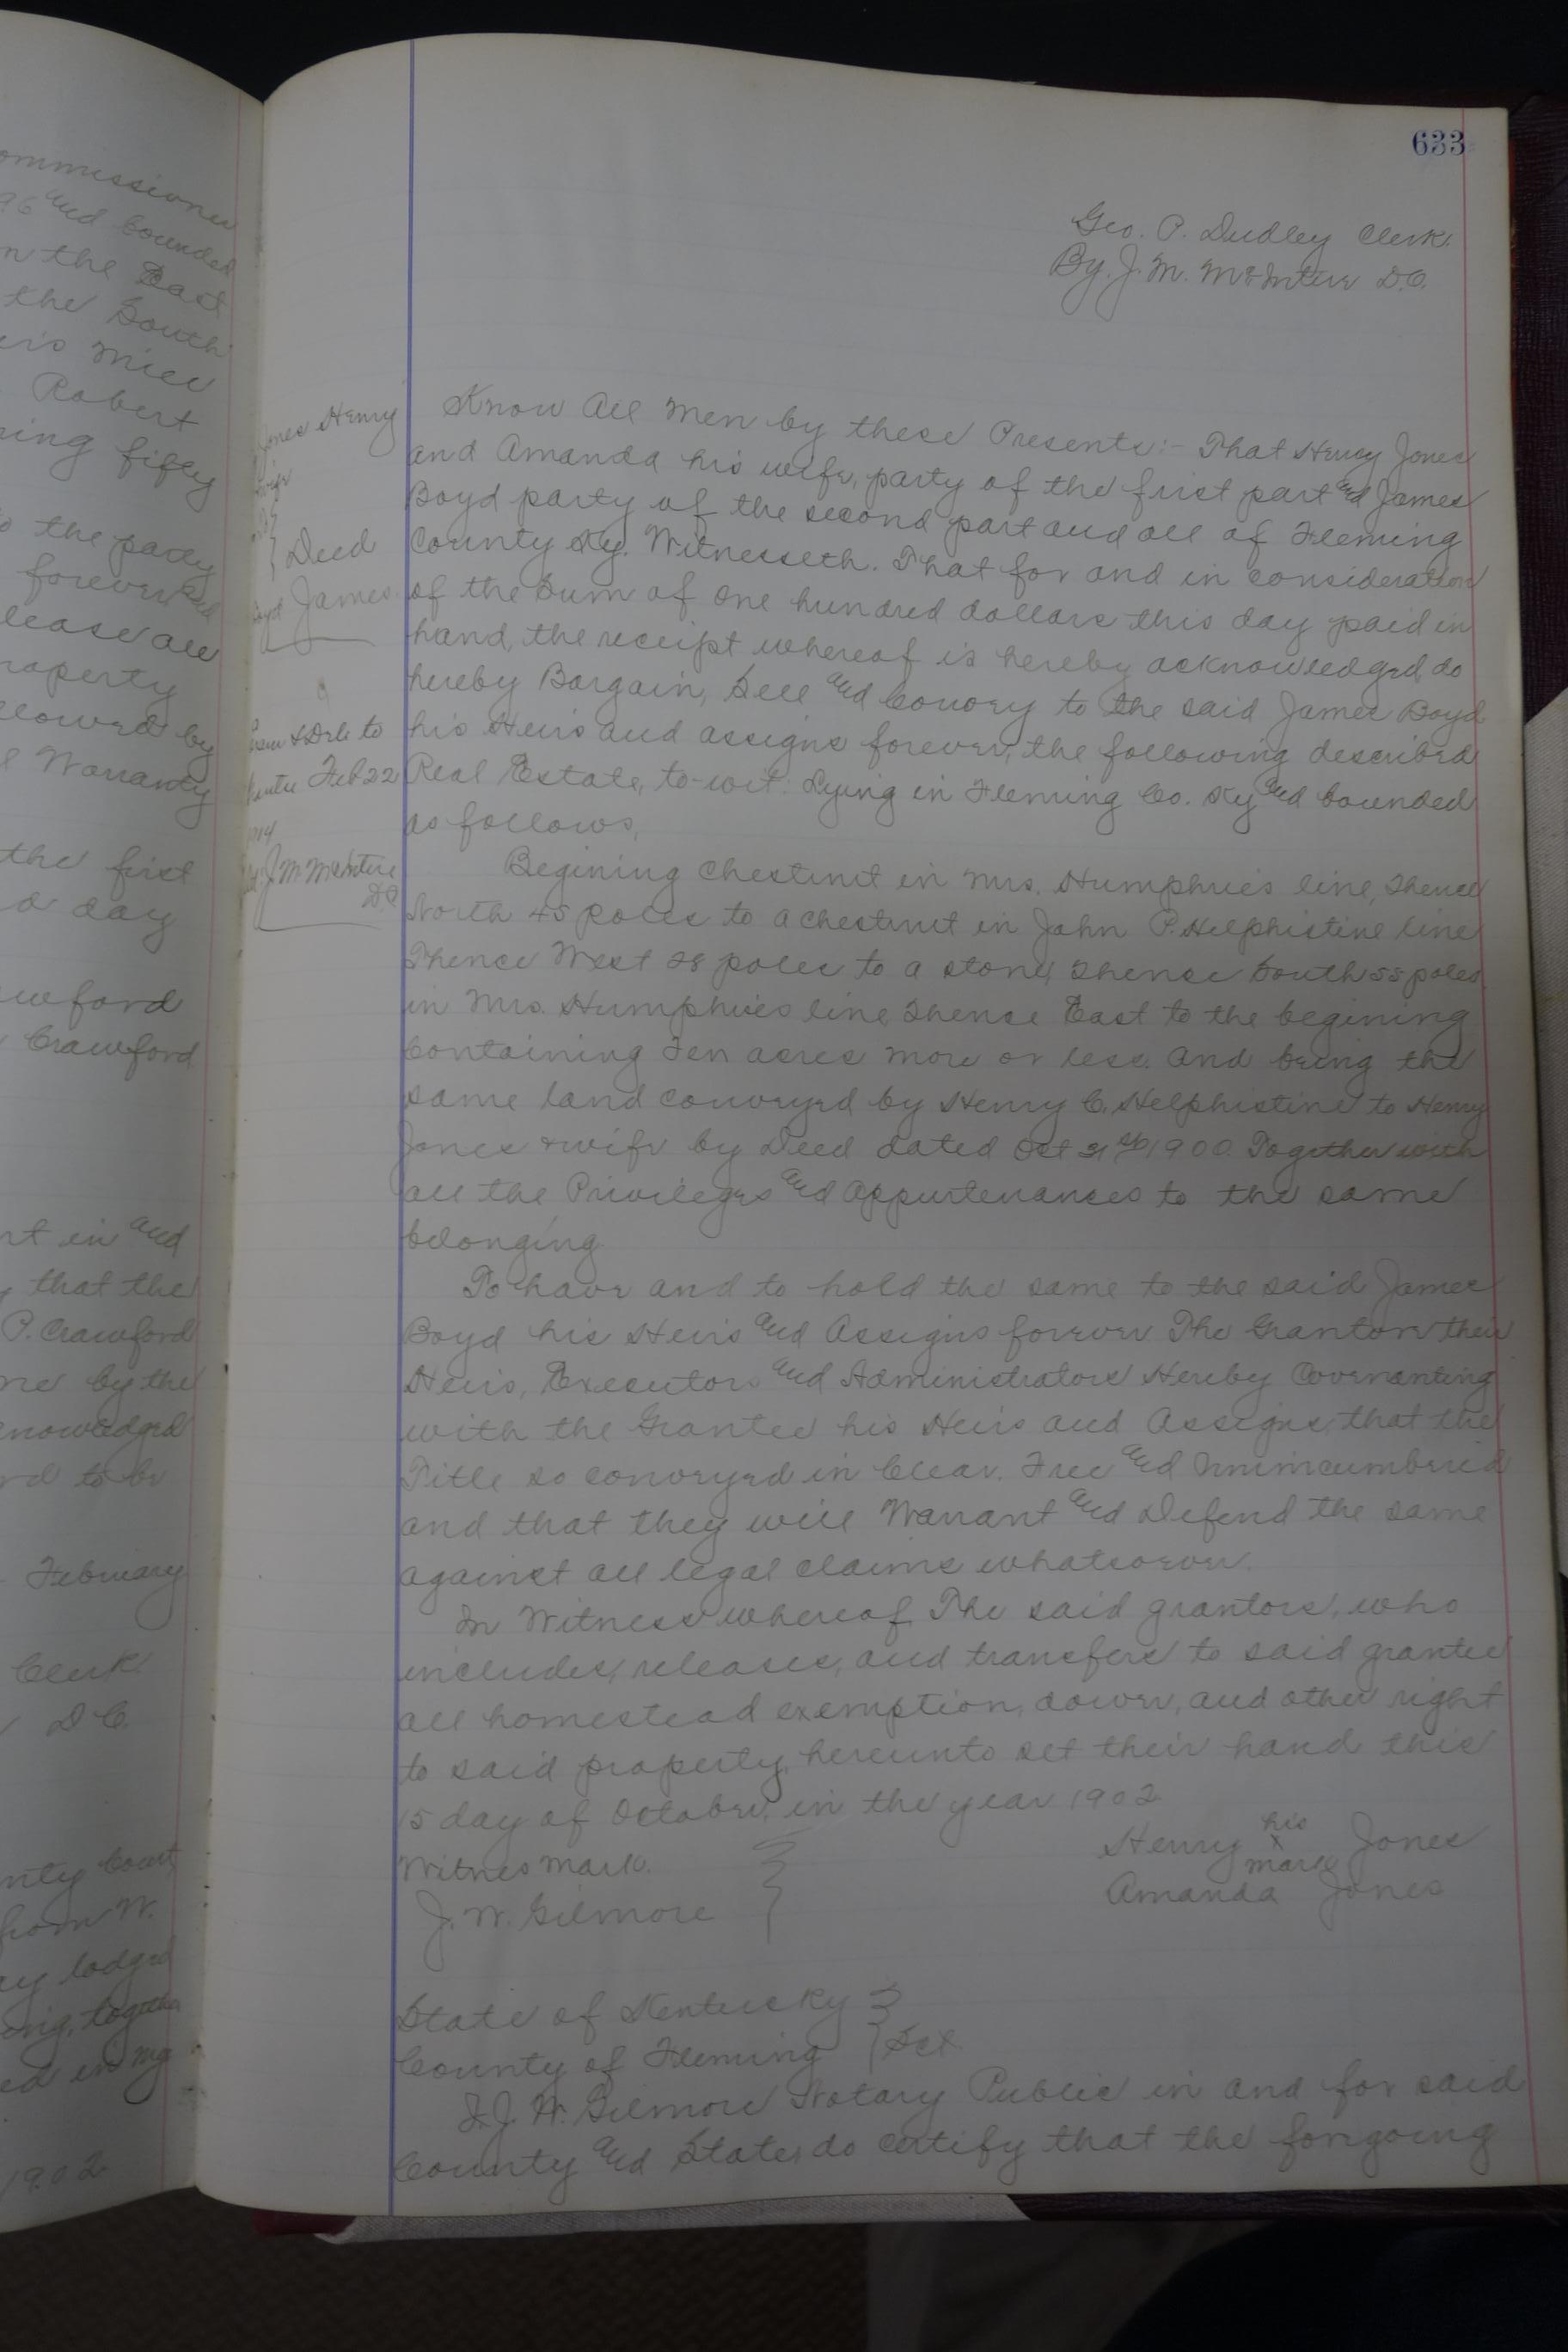 633
Geo. P. Dudley Clerk.
By. J. M. McIntire D.C.
Know All Men by these Presents:- That Henry Jones
and Amanda his wife, party of the first part and James
Boyd party of the second part and all of Fleming
County Ky. Witnesseth. That for and in consideration
of the Sum of One hundred dollars this day paid in
hand, the receipt whereof is hereby acknowledged, do
hereby Bargain, Sell and Convey to the said James Boyd
his Heirs and assigns forever, the following described
Real Estate, to-wit: Lying in Fleming Co. Ky and bounded
as follows,
Begining Chestnut in Mrs. Humphries line, Thence
North 45 Poles to a chestnut in John P. Helphistine line
Thence West 28 poles to a stone, Thense South 55 poles
in Mrs. Humphries line, Thense East to the begining
Containing Ten acres more or less. And being the
same land conveyed by Henry C. Helphistine to Henry
Jones & wife by Deed dated Oct 1900. Together with
all the Privileges and Appurtenances to the same
belonging
To have and to hold the same to the said James
Boyd his Heirs and Assigns forever The Grantors their
Heirs, Executors and Administrators Hereby Covenanting
with the Grantee his Heirs and Assigns, that the
Title so conveyed in Clear. Free and Unincumbered
and that they will Warrant and Defend the same
against all legal claims whatsoever.
In Witness whereof, The said grantors, who
includes, releases, and transfers to said grantee
all homestead exemption, dower, and other right
to said property, hereunto set their hand this
15 day of October, in the year 1902
Henry his x mark Jones
Witness Mark.
Amanda Jones
J. W. Gilmore
State of Kentucky
County of Fleming Sct.
I. J. W. Gilmore Notary Public in and for said
County and State, do certify that the foregoing
Jones Henry
wife
Deed
Boyd James
Deb to
Feb 22
J. M. McIntire
D.C.
ommissioner
96 and bounded
n the East
the South
Robert
ning fifty
the party
forever
lease all
roperty
llowed by
l Warranty
the first
a day
wford
Crawford
rt in and
that the
P. Crawford
me by the
knowledged
rd to be
February
Clerk
D C.
nty Court
from W.
ay lodged
ing, together
ed in my
1902